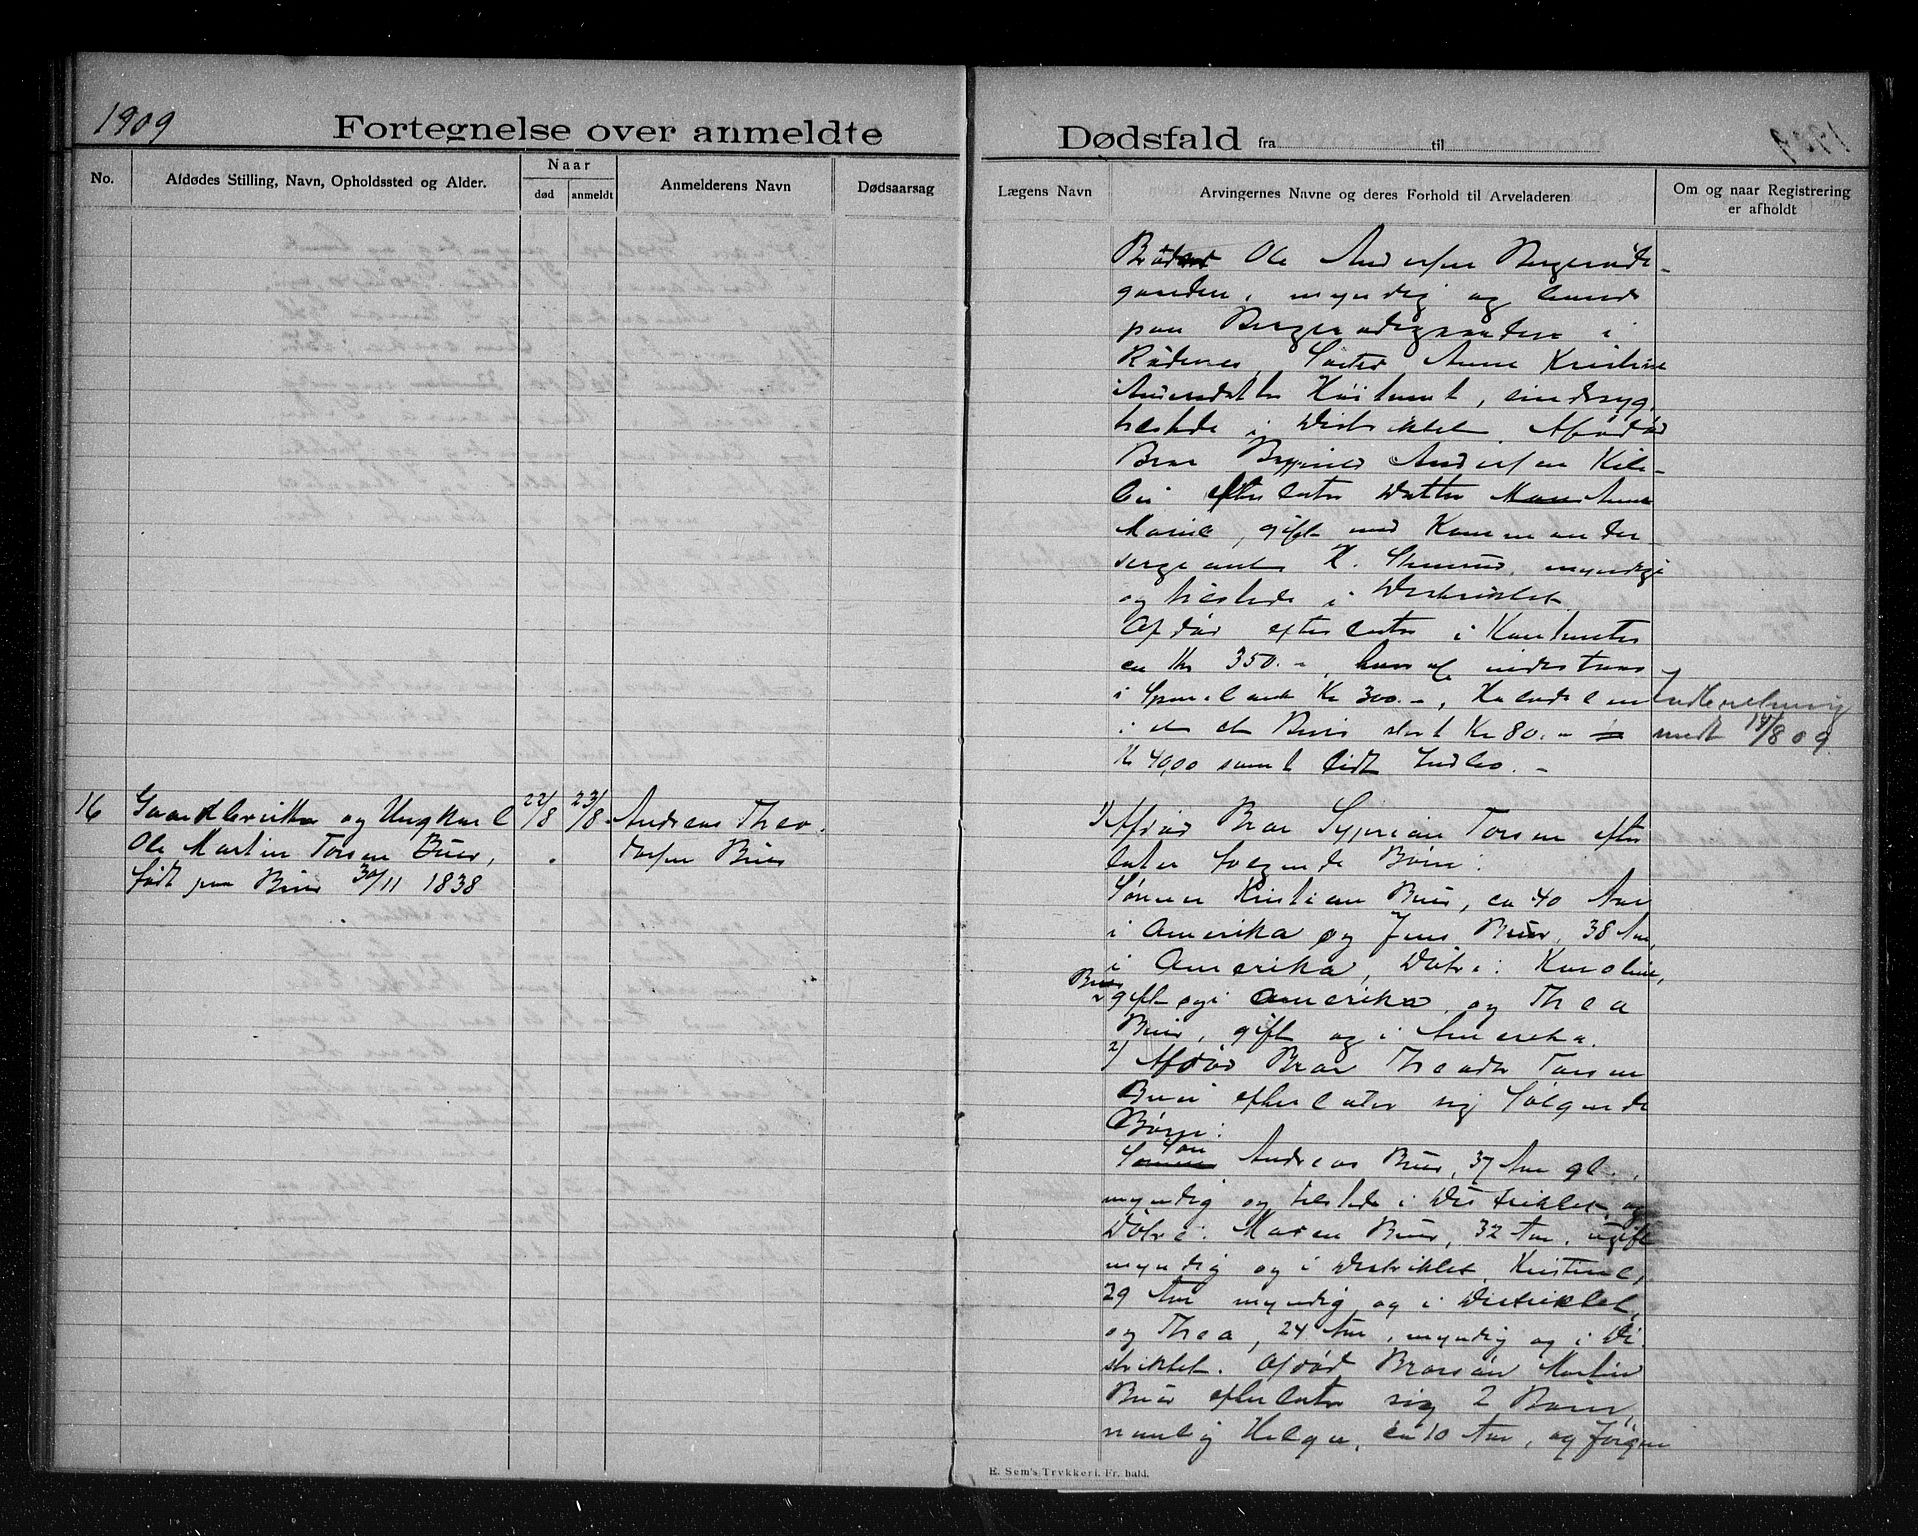 1909
Fortegnelse over anmeldte
Dødsfald fra til
No.
Afdødes Stilling, Navn, Opholdssted og Alder.
Naar
død
anmeldt
Anmelderens Navn
Dødsaarsag
Lægens Navn
Arvingernes Navne og deres Forhold til Arveladeren
Om og naar Registrering
er afholdt
Ole Andersen
myndig og boende
paa i
Rødenes, Søster Anne Kristine
sindssyg
i Distriktet. Afdød
Bror Andersen
efterlater Datter Anna
Marie, gift med Kommander
sergeant H. myndige
og tilstede i Distriktet
Afdød efterlater i Kontanter
ca Kr 350.-, hvoraf indestaar
i Kr 300.-,
stort Kr 80.-
Kr 40,00 samt lidt Indbo.-
14/8 09
16
Gaardbruker og Ungkarl
Ole Martin Torsen Buer,
født paa Buer 30/11 1838
22/8
23/8
Andreas Theo
dorsen Buer
1) Afdød Bror Syprian Torsen efter
later følgende Børn:
Sønner Kristian Buer, ca 40 Aar
i Amerika og Jens Buer, 38 Aar,
i Amerika, Døtre: Karoline
Buer
gift og i Amerika, og Thea
Buer, gift og i Amerika.
2) Afdød Bror Theodor Torsen
Buer efterlater sig følgende
Børn:
Søn
Andreas Buer, 37 Aar gl.,
myndig og tilstede i Distriktet, og
Døtre: Maren Buer, 32 Aar, ugift
myndig og i Distriktet, Kristine,
29 Aar myndig og i Distriktet,
og Thea, 24 Aar, myndig og i Di
striktet. Afdød Brorsøn Martin
Buer efterlater sig 2 Børn,
nemlig Helga, ca 10 Aar, og Jørgen
E. Sem's Trykkeri. Fr. hald.